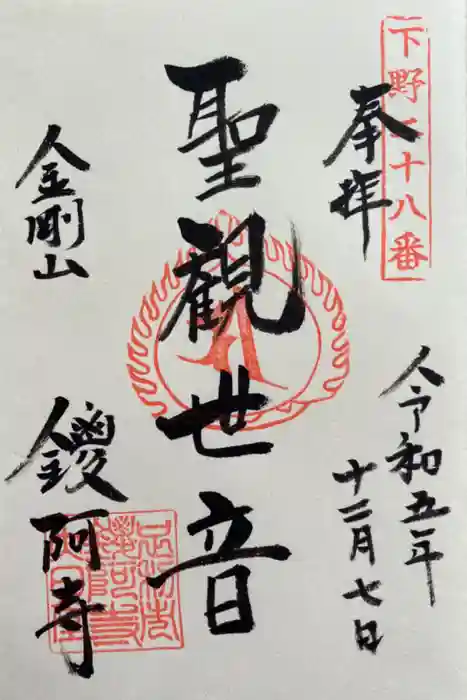 下野二十八番
奉拝
令和五年
十二月七日
聖観世音
金剛山
鑁阿寺